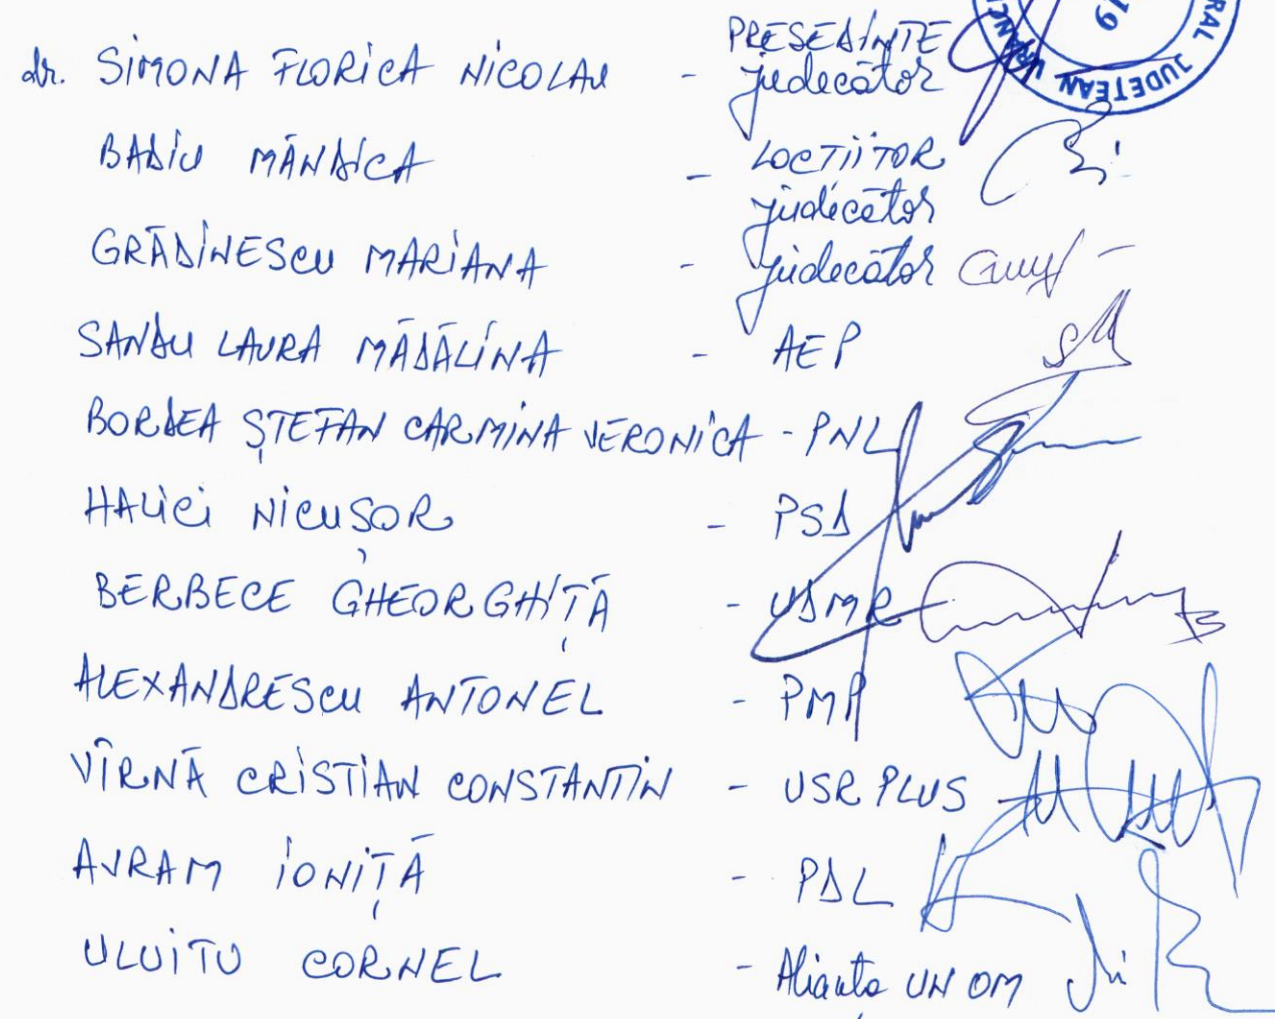 PREȘEDINTE
dr. SIMONA FLORICA NICOLAU - judecător
BADIU MÂNDICA - LOCȚIITOR
judecător
GRĂDINESCU MARIANA - judecător
SANDU LAURA MĂDĂLINA - AEP
BORDEA ȘTEFAN CARMINA VERONICA - PNL
HALICI NICUȘOR - PSD
BERBECE GHEORGHIȚĂ - UDMR
ALEXANDRESCU ANTONEL - PMP
VÎRNĂ CRISTIAN CONSTANTIN - USR PLUS
AVRAM IONIȚĂ - PDL
ULUITU CORNEL - Alianța UN OM
RAL JUDEȚEAN VRANC
19